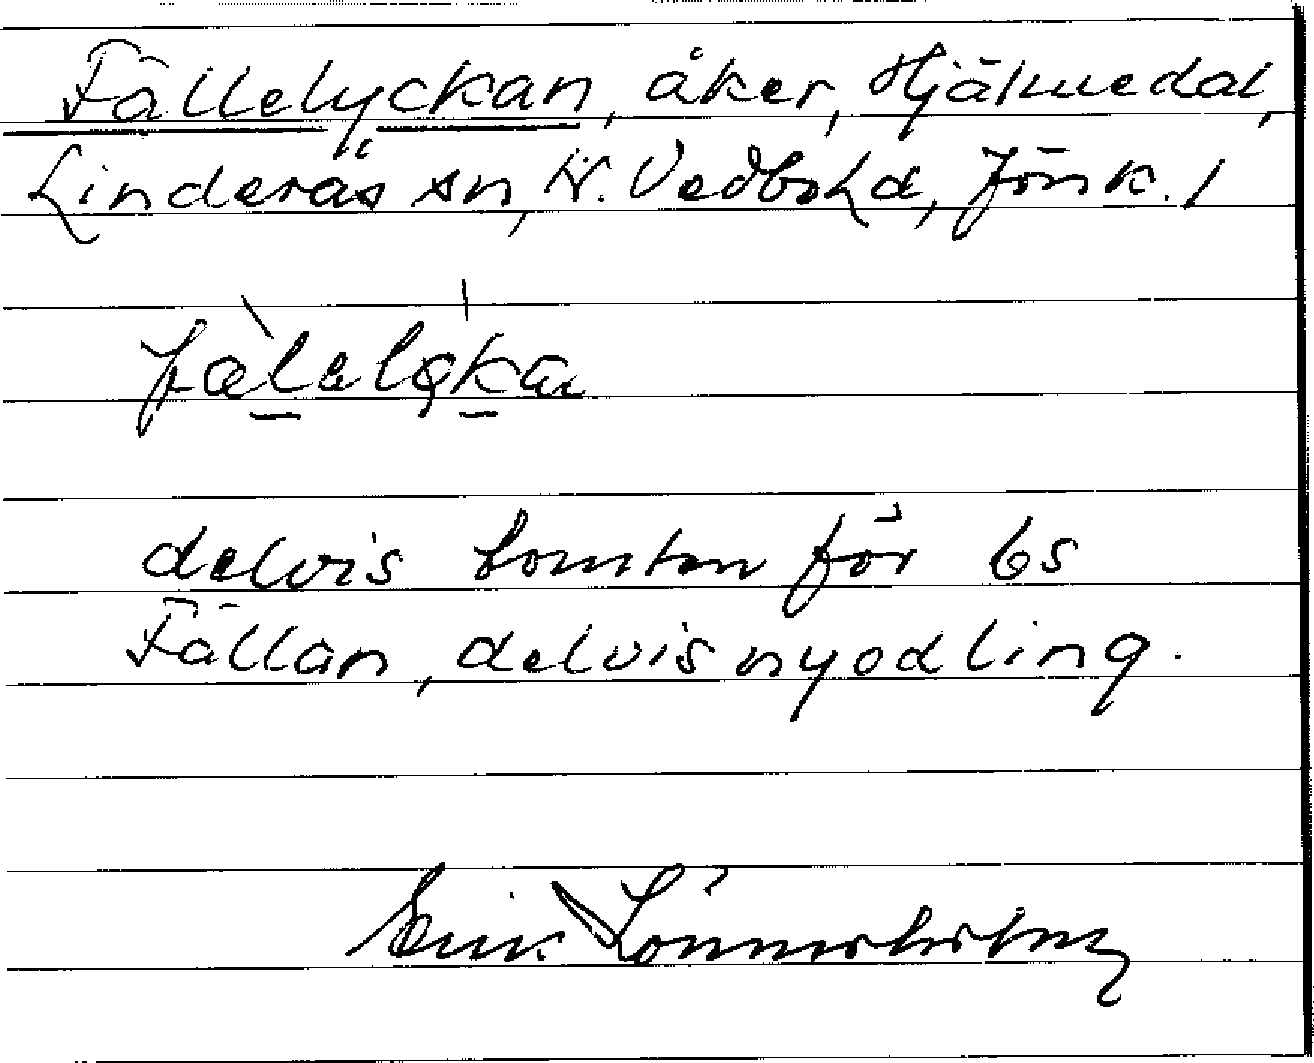 Fällelyckan, åker, Hjälmedal,
Linderås sn, N. Vedbo hd, Jönk. l
fälelykan
delvis tomten för bs
Fällan, delvis nyodling.
Erik